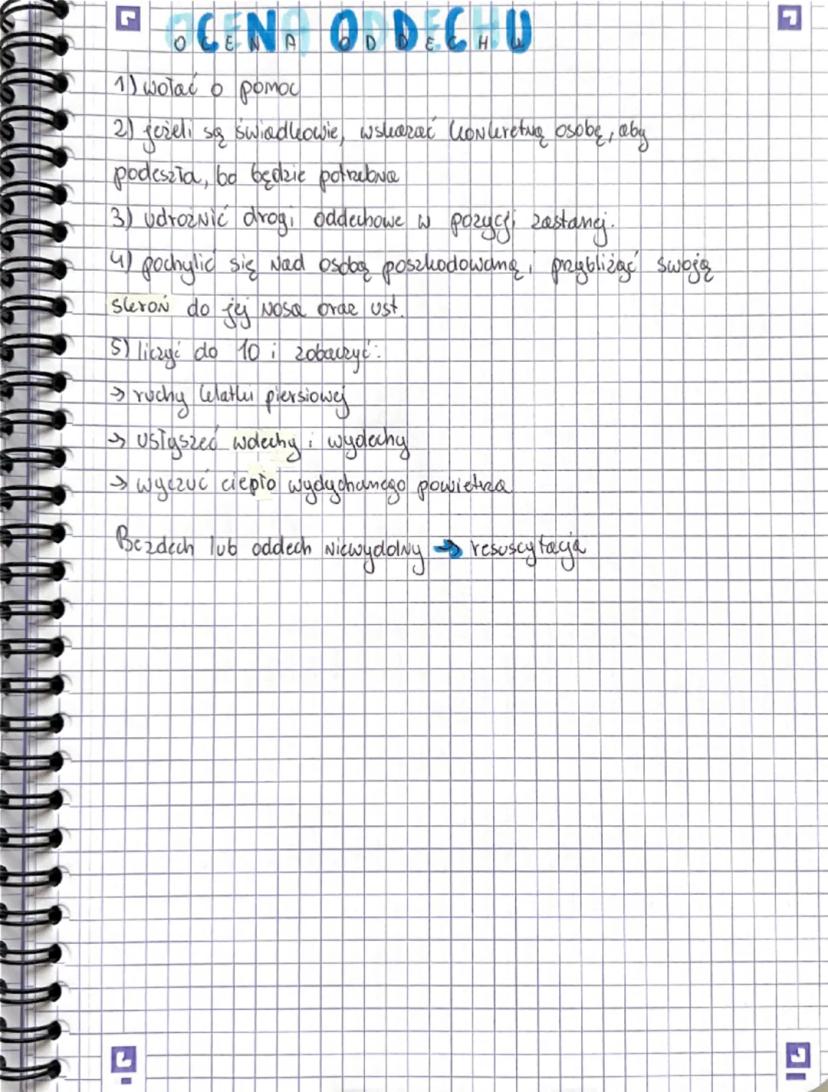 OCENA ODDECHU
1) wołać o pomoc
2) jeżeli są świadkowie, wskazać konkretną osobę, aby
podeszła, bo będzie potrzebna
3) udrożnić drogi oddechowe w pozycji zastanej.
4) pochylić się nad osobą poszkodowaną i przybliżać swoją
skroń do jej nosa oraz ust.
5) liczyć do 10 i zobaczyć:
→ ruchy klatki piersiowej
→ usłyszeć wdechy i wydechy
→ wyczuć ciepło wydychanego powietrza
Bezdech lub oddech niewydolny → resuscytacja